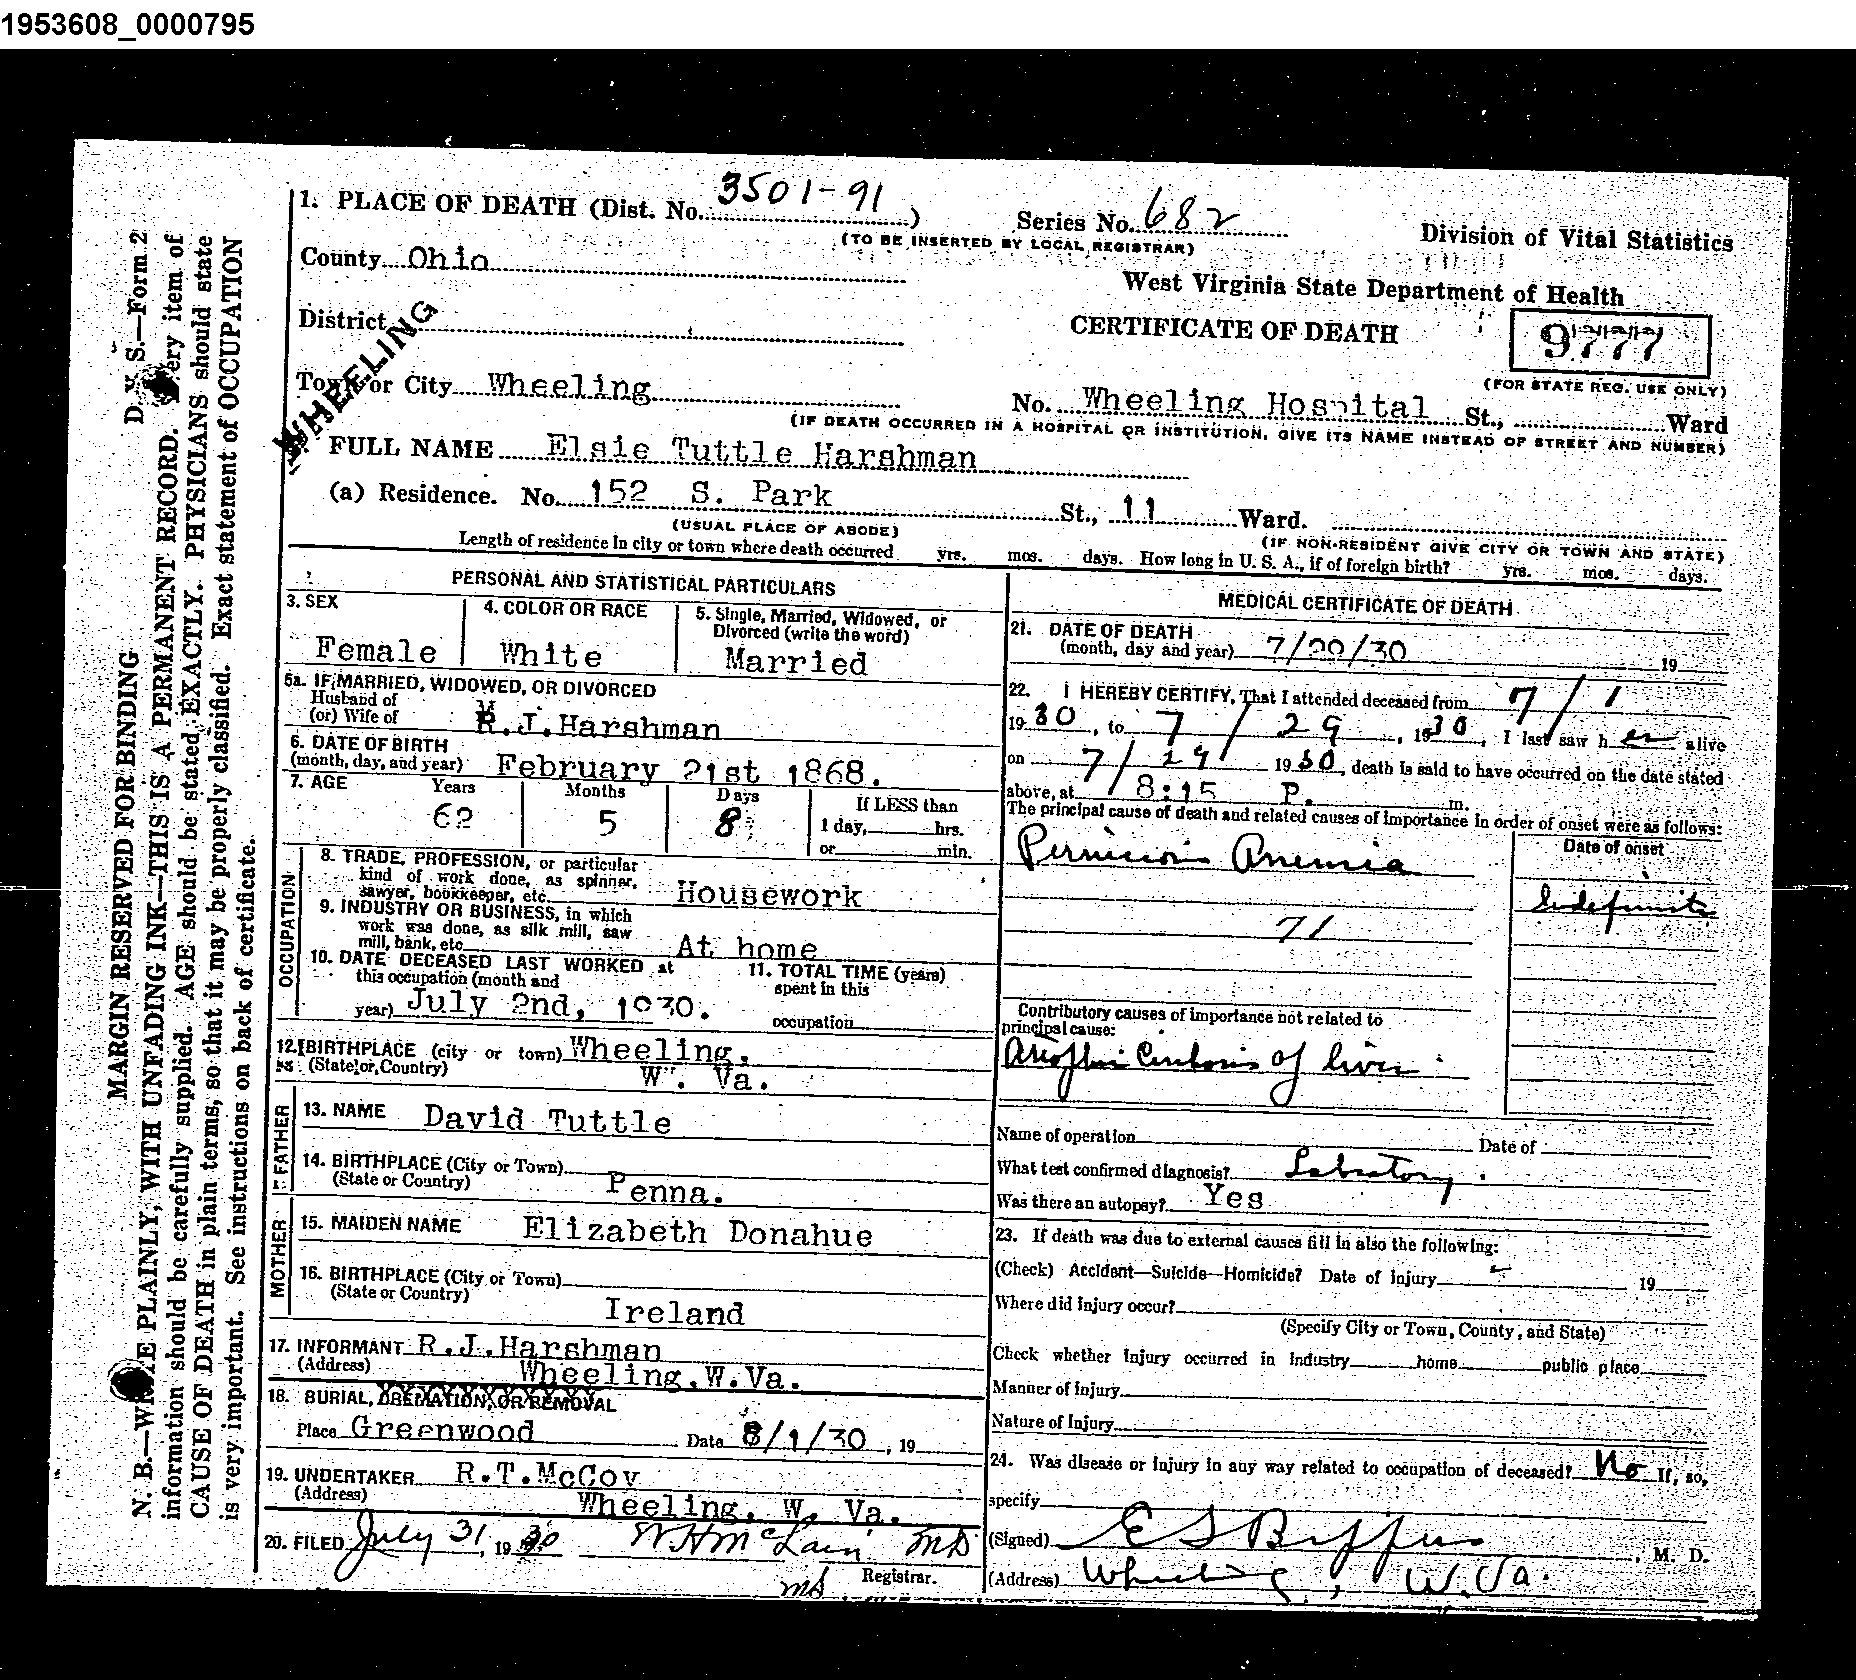 1953608_0000795
1. PLACE OF DEATH (Dist. No. 3501-91)
Series No. 682
(TO BE INSERTED BY LOCAL REGISTRAR)
Division of Vital Statistics
County Ohio
West Virginia State Department of Health
District
WHEELING
CERTIFICATE OF DEATH
9777
(FOR STATE REG. USE ONLY)
Town or City Wheeling
No. Wheeling Hospital St., Ward
(IF DEATH OCCURRED IN A HOSPITAL OR INSTITUTION, GIVE ITS NAME INSTEAD OF STREET AND NUMBER)
FULL NAME Elsie Tuttle Harshman
(a) Residence. No. 152 S. Park St., 11 Ward.
(USUAL PLACE OF ABODE)
(IF NON-RESIDENT GIVE CITY OR TOWN AND STATE)
Length of residence in city or town where death occurred yrs. mos. days. How long in U. S. A., if of foreign birth? yrs. mos. days.
PERSONAL AND STATISTICAL PARTICULARS
3. SEX
Female
4. COLOR OR RACE
White
5. Single, Married, Widowed, or
Divorced (write the word)
Married
5a. IF MARRIED, WIDOWED, OR DIVORCED
Husband of
(or) Wife of R.J.Harshman
6. DATE OF BIRTH
(month, day, and year) February 21st 1868.
7. AGE Years Months Days If LESS than
62 5 8 1 day, hrs.
or min.
OCCUPATION
8. TRADE, PROFESSION, or particular
kind of work done, as spinner,
sawyer, bookkeeper, etc. Housework
9. INDUSTRY OR BUSINESS, in which
work was done, as silk mill, saw
mill, bank, etc. At home
10. DATE DECEASED LAST WORKED at
this occupation (month and
year) July 2nd, 1930.
11. TOTAL TIME (years)
spent in this
occupation
12. BIRTHPLACE (city or town) Wheeling,
(State or Country) W. Va.
FATHER
13. NAME David Tuttle
14. BIRTHPLACE (City or Town)
(State or Country) Penna.
MOTHER
15. MAIDEN NAME Elizabeth Donahue
16. BIRTHPLACE (City or Town)
(State or Country) Ireland
17. INFORMANT R.J.Harshman
(Address) Wheeling,W.Va.
18. BURIAL, CREMATION, OR REMOVAL
Place Greenwood Date 8/1/30, 19
19. UNDERTAKER R.T.McCoy
(Address) Wheeling, W. Va.
20. FILED July 31, 1930 W H McLain MD
Registrar.
MEDICAL CERTIFICATE OF DEATH
21. DATE OF DEATH
(month, day and year) 7/29/30 19
22. I HEREBY CERTIFY, That I attended deceased from 7/1
1930, to 7/29, 1930, I last saw her alive
on 7/29 1930, death is said to have occurred on the date stated
above, at 8:15 P. m.
The principal cause of death and related causes of importance in order of onset were as follows:
Date of onset
Pernicious Anemia
Indefinite
71
Contributory causes of importance not related to
principal cause:
Atrophic Cirrhosis of liver
Name of operation Date of
What test confirmed diagnosis? Labratory.
Was there an autopsy? Yes
23. If death was due to external causes fill in also the following:
(Check) Accident—Suicide—Homicide? Date of Injury 19
Where did Injury occur?
(Specify City or Town, County, and State)
Check whether Injury occurred in Industry home public place
Manner of Injury
Nature of Injury
24. Was disease or Injury in any way related to occupation of deceased? No If, so,
specify
(Signed) E S Bippus, M. D.
(Address) Wheeling, W. Va.
MARGIN RESERVED FOR BINDING D. V. S.—Form 2
N. B.—WRITE PLAINLY, WITH UNFADING INK—THIS IS A PERMANENT RECORD. Every item of
information should be carefully supplied. AGE should be stated EXACTLY. PHYSICIANS should state
CAUSE OF DEATH in plain terms, so that it may be properly classified. Exact statement of OCCUPATION
is very important. See instructions on back of certificate.